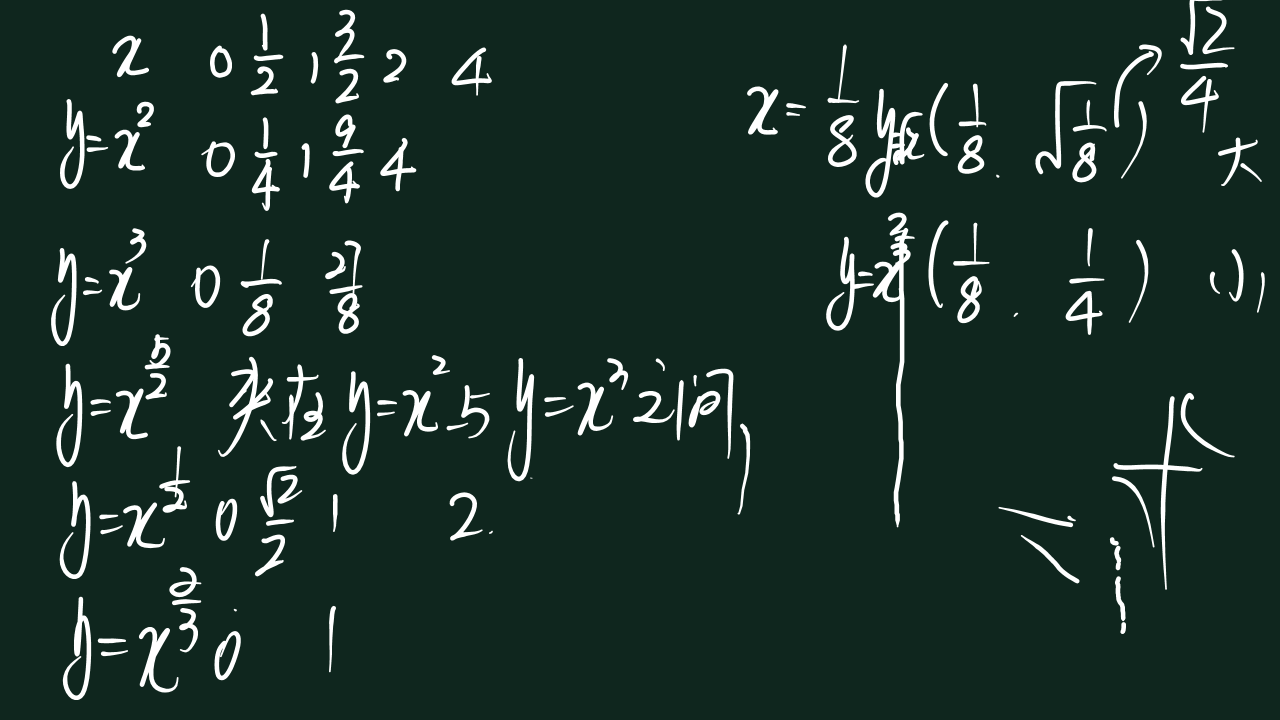 x 0 1/2 1 3/2 2 4
y=x² 0 1/4 1 9/4 4
y=x³ 0 1/8 27/8
y=x^(5/2) 夹在y=x²与y=x³之间,
y=x^(1/2) 0 √2/2 1 2.
y=x^(2/3) 0 1
x=1/8 y=√x (1/8, √(1/8)) √2/4 大
y=x^(2/3) (1/8, 1/4) 小